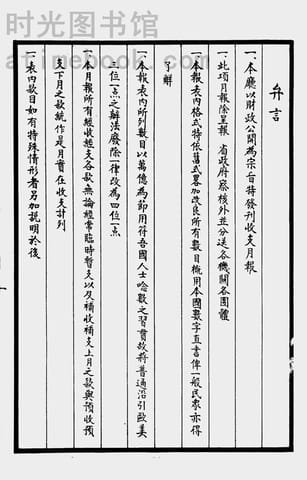 时光图书馆
atimebook.com
弁言
一、本廳以財政公開為宗旨特發刊收支月報
一、此項月報除呈報 省政府察核外並分送各機關各團體
一、本報表內格式特依舊式畧加改良所有數目概用本國數字直書俾一般民衆亦得
了解
一、本報表內所列數目以萬億為節用符吾國人士唸數之習慣故蔣普通沿引歐美
三位一点之辦法廢除一律改為四位一点
一、本月報所有經收經支各款無論經常臨時暫支以及補收補支上月之款與預收預
支下月之款統作是月實在收支計列
一、表內款目如有特殊情形者另加説明於後